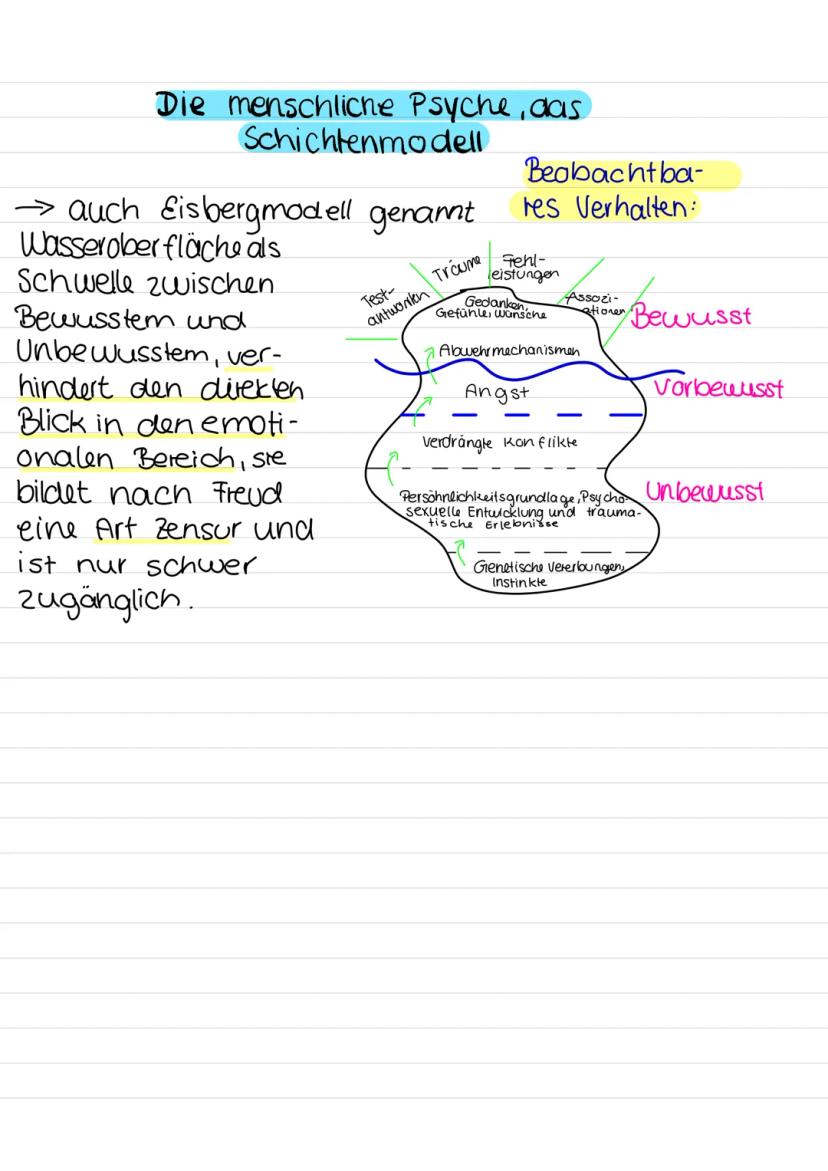 Die menschliche Psyche, das
Schichtenmodell
Beobachtba-
res Verhalten:
→ auch Eisbergmodell genannt
Wasseroberfläche als
Schwelle zwischen
Bewusstem und
Unbewusstem, ver-
hindert den direkten
Blick in den emoti-
onalen Bereich, sie
bildet nach Freud
eine Art Zensur und
ist nur schwer
zugänglich.
Test-
antworten
Träume
Fehl-
leistungen
Assozi-
ationen
Gedanken,
Gefühle, Wünsche
Abwehrmechanismen
Angst
Verdrängte Konflikte
Persönlichkeitsgrundlage, Psycho-
sexuelle Entwicklung und trauma-
tische Erlebnisse
Genetische Vererbungen,
Instinkte
Bewusst
Vorbewusst
Unbewusst